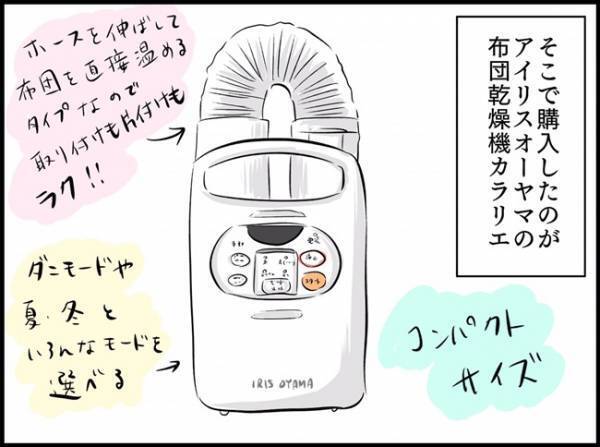 そこで購入したのが
アイリスオーヤマの
布団乾燥機カラリエ
ホースを伸ばして
布団を直接温める
タイプなので
取り付けも片付けも
ラク!!
ダニモードや
夏・冬と
いろんなモードを
選べる
コンパクト
サイズ
IRIS OYAMA